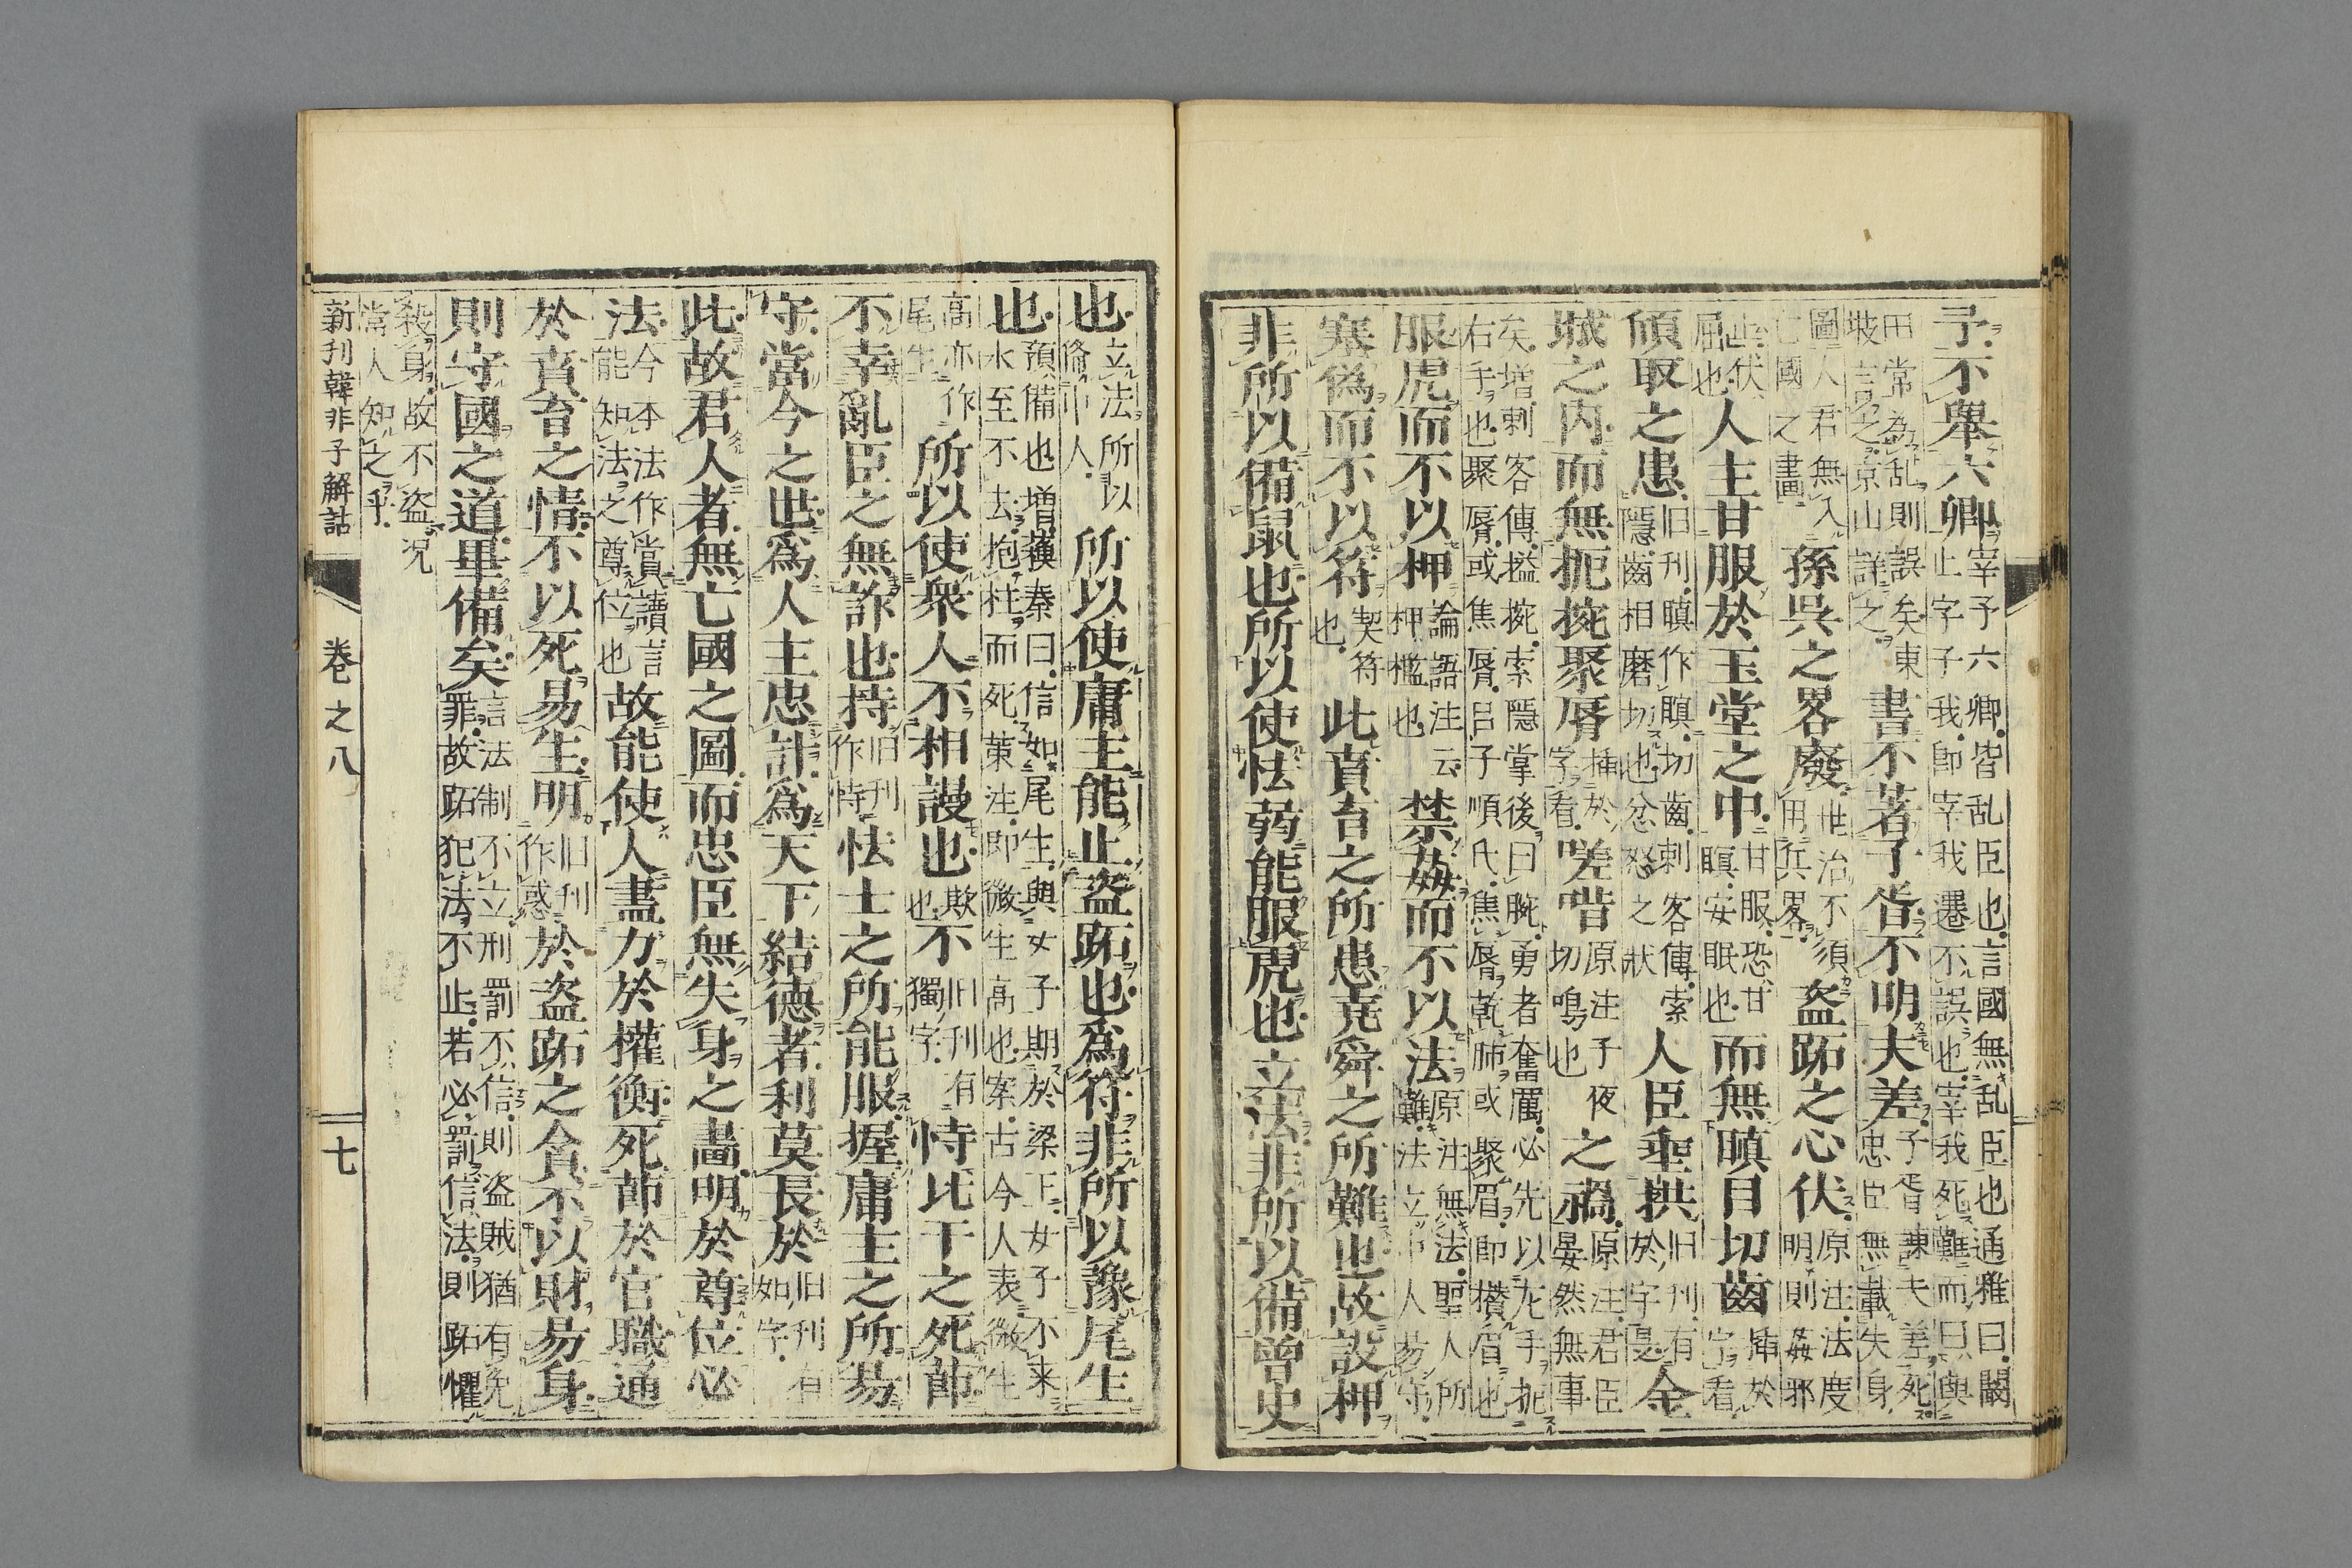 予不舉六卿宰予六卿皆乱臣也言國無乱臣也通雅曰闞止字子我即宰我遷不誤也宰我死難而曰與
田常為乱則誤矣東坡言之京山詳之書不著子胥不明夫差子胥諫夫差死忠臣無載失身
圖人君無入亡國之畫孫呉之畧廢世治不須用兵畧盗跖之心伏原注法度明則姦邪
止伏屈也人主甘服於玉堂之中甘服恐甘瞑安眠也而無瞋目切齒挿於字看
傾取之患旧刊瞋作瞑切齒刺客傳索隱齒相磨切也忿怒之狀人臣垂拱旧刊有於字是金
城之内而無扼捥聚脣挿於字看嗟唶原注子夜切鳴也之禍原注君臣晏然無事
矣増刺客傳搤捥索隱掌後曰腕勇者奮厲必先以左手扼右手也聚脣或焦脣吕子順氏焦脣乾肺或聚眉即攅眉也
服虎而不以柙論語注云柙檻也禁姦而不以法原注無法聖人所難法立即人易守
塞偽而不以符契符也此賁育之所患堯舜之所難也故設柙
非所以備鼠也所以使怯弱能服虎也立法非所以備曽史
也立法所以俻中人所以使庸主能止盗跖也為符非所以豫尾生
也預備也増蘓秦曰信如尾生與女子期於梁下女子不来水至不去抱柱而死策注即微生高也案古今人表微生
高亦作尾生所以使衆人不相謾也欺也不旧刊有獨字恃比干之死節
不幸亂臣之無詐也持旧刊作恃怯士之所能服握庸主之所易
守當今之世為人主忠計為天下結德者利莫長於旧刊有如字
此故君人者無亡國之圖而忠臣無失身之畫明於尊位必
法今本法作賞讀言能知法之尊位也故能使人盡力於權衡死節於官職通
於賁育之情不以死易生明旧刊作惑於盗跖之貪不以財易身
則守國之道畢備矣言法制不立刑罰不信則盗賊猶有免罪故跖犯法不止若必罰信法則跖懼
殺身故不盗況常人知之乎
新刊韓非子解詁　卷之八　七